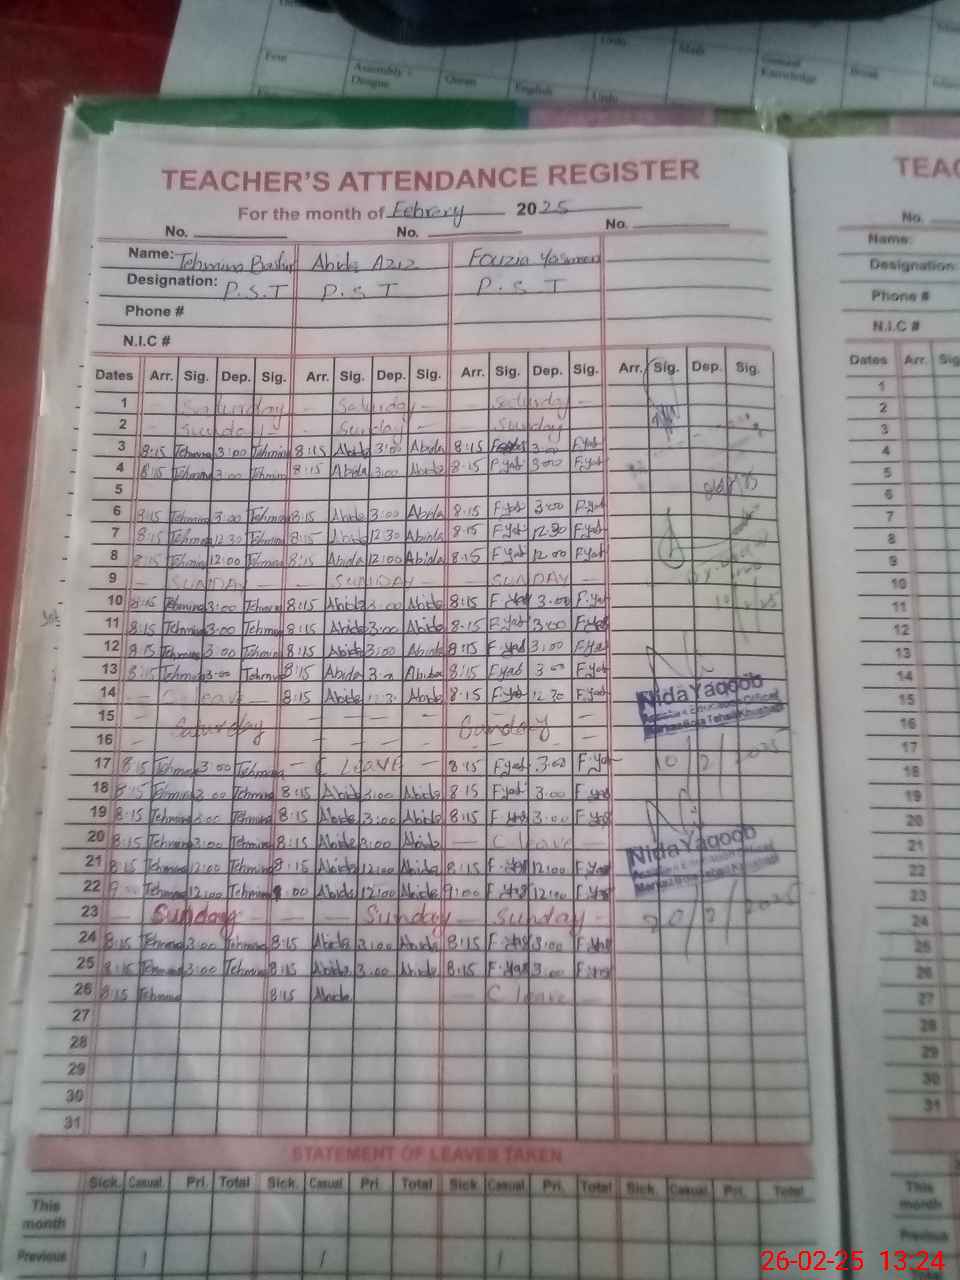 Assembly + Quran English Urdu Math General Knowledge Break
TEACHER'S ATTENDANCE REGISTER
For the month of Febrery 2025
No. No. No.
Name: Tehmina Bashir Abida Aziz Fouzia Yasmeen
Designation: P.S.T P.S.T P.S.T
Phone #
N.I.C #
Dates Arr. Sig. Dep. Sig. Arr. Sig. Dep. Sig. Arr. Sig. Dep. Sig. Arr. Sig. Dep. Sig.
1 — Saturday — Saturday — Saturday —
2 — Sunday — Sunday — Sunday
3 8:15 Tehmina 3:00 Tehmina 8:15 Abida 3:00 Abida 8:15 3:00 F.yas
4 8:15 Tehmina 3:00 Tehmina 8:15 Abida 3:00 Abida 8:15 F.yas 3:00 F.yas
5
6 8:15 Tehmina 3:00 Tehmina 8:15 Abida 3:00 Abida 8:15 F.yas 3:00 F.yas
7 8:15 Tehmina 12:30 Tehmina 8:15 Abida 12:30 Abida 8:15 F.yas 12:30 F.yas
8 8:15 Tehmina 12:00 Tehmina 8:15 Abida 12:00 Abida 8:15 F.yas 12:00 F.yas
9 — SUNDAY — — SUNDAY — — SUNDAY —
10 8:15 Tehmina 3:00 Tehmina 8:15 Abida 3:00 Abida 8:15 F.yas 3:00 F.yas
11 8:15 Tehmina 3:00 Tehmina 8:15 Abida 3:00 Abida 8:15 F.yas 3:00 F.yas
12 8:15 Tehmina 3:00 Tehmina 8:15 Abida 3:00 Abida 8:15 F.yas 3:00 F.yas
13 8:15 Tehmina 3:00 Tehmina 8:15 Abida 3:00 Abida 8:15 F.yas 3:00 F.yas
14 — C leave — 8:15 Abida 12:30 Abida 8:15 F.yas 12:30 F.yas
Nida Yaqoob
15 Saturday Sunday
16
10/2/2025
17 8:15 Tehmina 3:00 Tehmina — C LEAVE — 8:15 F.yas 3:00 F.yas
18 8:15 Tehmina 3:00 Tehmina 8:15 Abida 3:00 Abida 8:15 F.yas 3:00 F.yas
19 8:15 Tehmina 3:00 Tehmina 8:15 Abida 3:00 Abida 8:15 F.yas 3:00 F.yas
20 8:15 Tehmina 3:00 Tehmina 8:15 Abida 3:00 Abida — C leave —
Nida Yaqoob
21 8:15 Tehmina 12:00 Tehmina 8:15 Abida 12:00 Abida 8:15 F.yas 12:00 F.yas
22 9:00 Tehmina 12:00 Tehmina 9:00 Abida 12:00 Abida 9:00 F.yas 12:00 F.yas
23 — Sunday — — Sunday — Sunday —
20/2/2025
24 8:15 Tehmina 3:00 Tehmina 8:15 Abida 3:00 Abida 8:15 F.yas 3:00 F.yas
25 8:15 Tehmina 3:00 Tehmina 8:15 Abida 3:00 Abida 8:15 F.yas 3:00 F.yas
26 8:15 Tehmina 8:15 Abida — C leave —
27
28
29
30
31
STATEMENT OF LEAVES TAKEN
Sick. Casual. Pri. Total Sick. Casual. Pri. Total Sick. Casual. Pri. Total Sick. Casual. Pri. Total
This month
Previous 1 1 1
TEAC
No.
Name:
Designation:
Phone #
N.I.C #
Dates Arr. Sig
1
2
3
4
5
6
7
8
9
10
11
12
13
14
15
16
17
18
19
20
21
22
23
24
25
26
27
28
29
30
31
Sick. Casual
This month
Previous
26-02-25 13:24